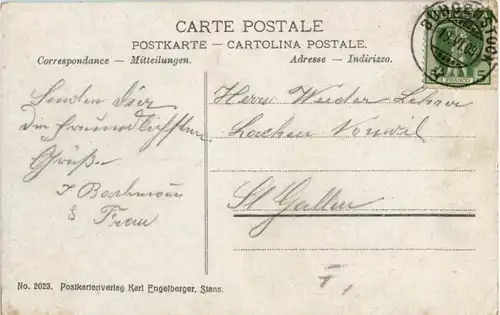 CARTE POSTALE
POSTKARTE — CARTOLINA POSTALE.
Correspondance — Mitteilungen.
Adresse — Indirizzo.
FRANCO
Senden Dir
die freundlichsten
Grüße.
J Bachmann
& Frau
Herrn Lehrer
Lachen Vonwil
St Gallen
No. 2023. Postkartenverlag Karl Engelberger, Stans.